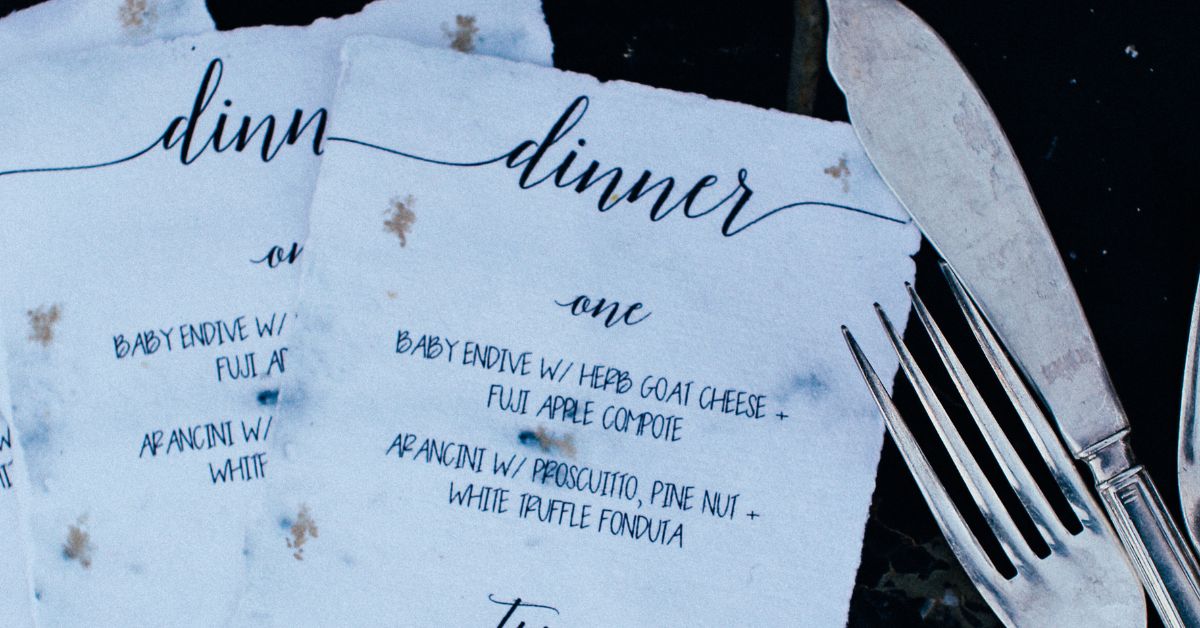 dinn
or
BABY ENDIVE W/
FUJI AP
ARANCINI W/
WHITE
dinner
one
BABY ENDIVE W/ HERB GOAT CHEESE +
FUJI APPLE COMPOTE
ARANCINI W/ PROSCUITTO, PINE NUT +
WHITE TRUFFLE FONDUTA